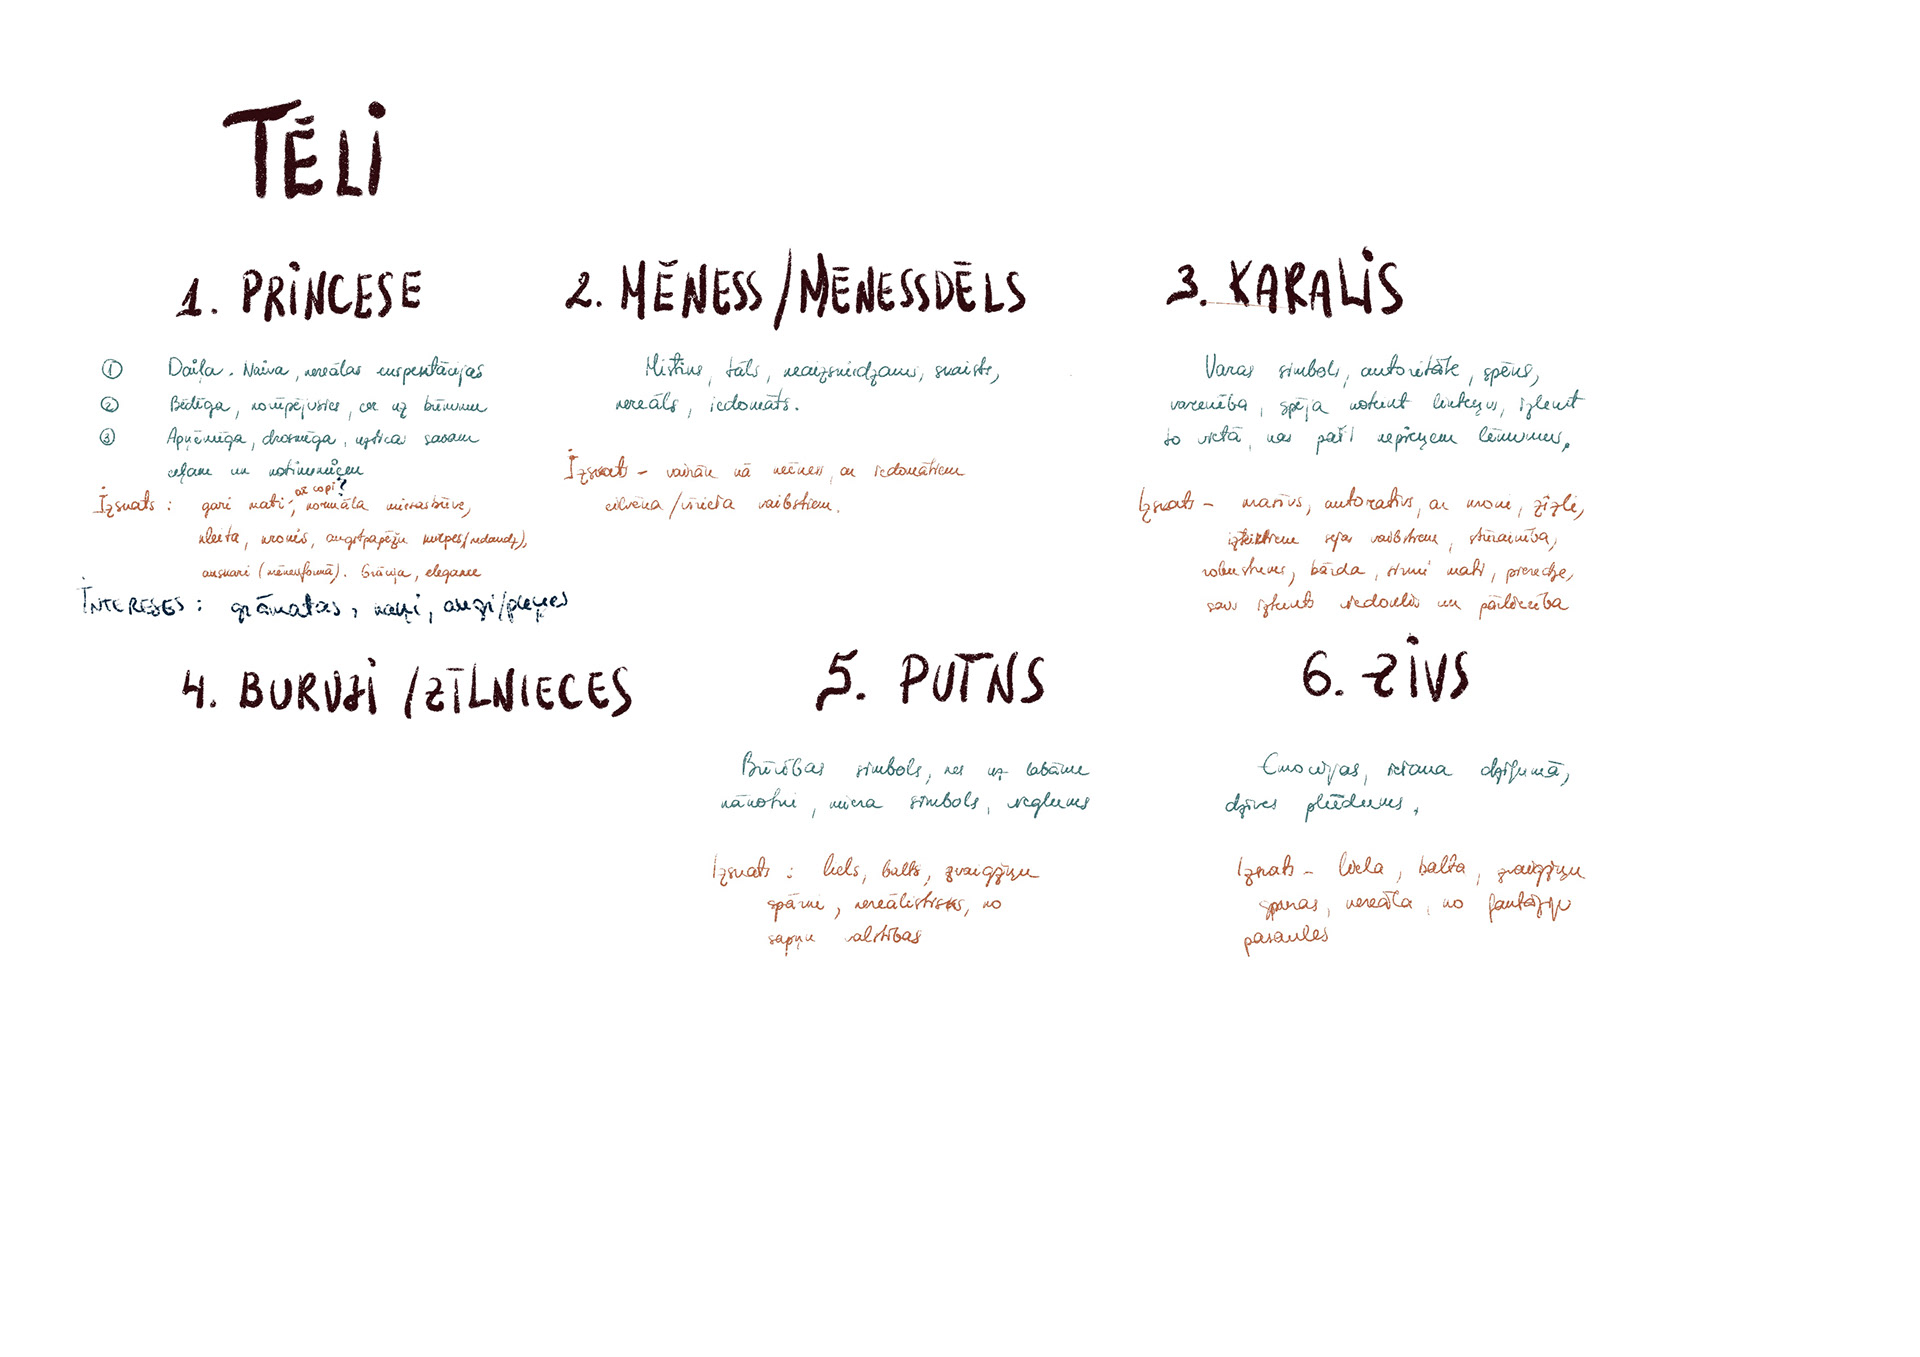 TĒLI
1. PRINCESE
① Daiļa. Naiva, nereālas ekspektācijas
② Bēdīga, norūpējusies, cer uz brīnumu
③ Apņēmīga, drosmīga, uzticas savam
ceļam un notikumiem
Izskats : gari mati - ar copi?, normāla miesasbūve,
kleita, kronis, augstpapēžu kurpes (nedaudz),
auskari (mēnessformā). Grācija, elegance
INTERESES : grāmatas, kaķi, augi/pļavas
2. MĒNESS / MĒNESSDĒLS
Mistisks, tāls, neaizsniedzams, skaists,
nereāls, iedomāts.
Izskats - vairāk kā mēness, ar iedomātiem
cilvēka / vīrieša vaibstiem.
3. KARALIS
Varas simbols, autoritāte, spēks,
varenība, spēja noteikt likteņus, izlemt
to vietā, kas paši nepieņem lēmumus.
Izskats - masīvs, autoratīvs, ar kroni, zizli,
izteiktiem sejas vaibstiem, stūrainība,
robustums, bārda, sirmi mati, pieredze,
savs izteikts viedoklis un pārliecība
4. BURVJI / ZĪLNIECES
5. PUTNS
Brīvības simbols, nes uz labāku
nākotni, miera simbols, vieglums
Izskats : liels, balts, zvaigžņu
spārni, nereālistisks, no
sapņu valstības
6. ZIVS
Emocijas, iešana dziļumā,
dzīves plūdums.
Izskats - liela, balta, zvaigžņu
spuras, nereāla, no fantāziju
pasaules